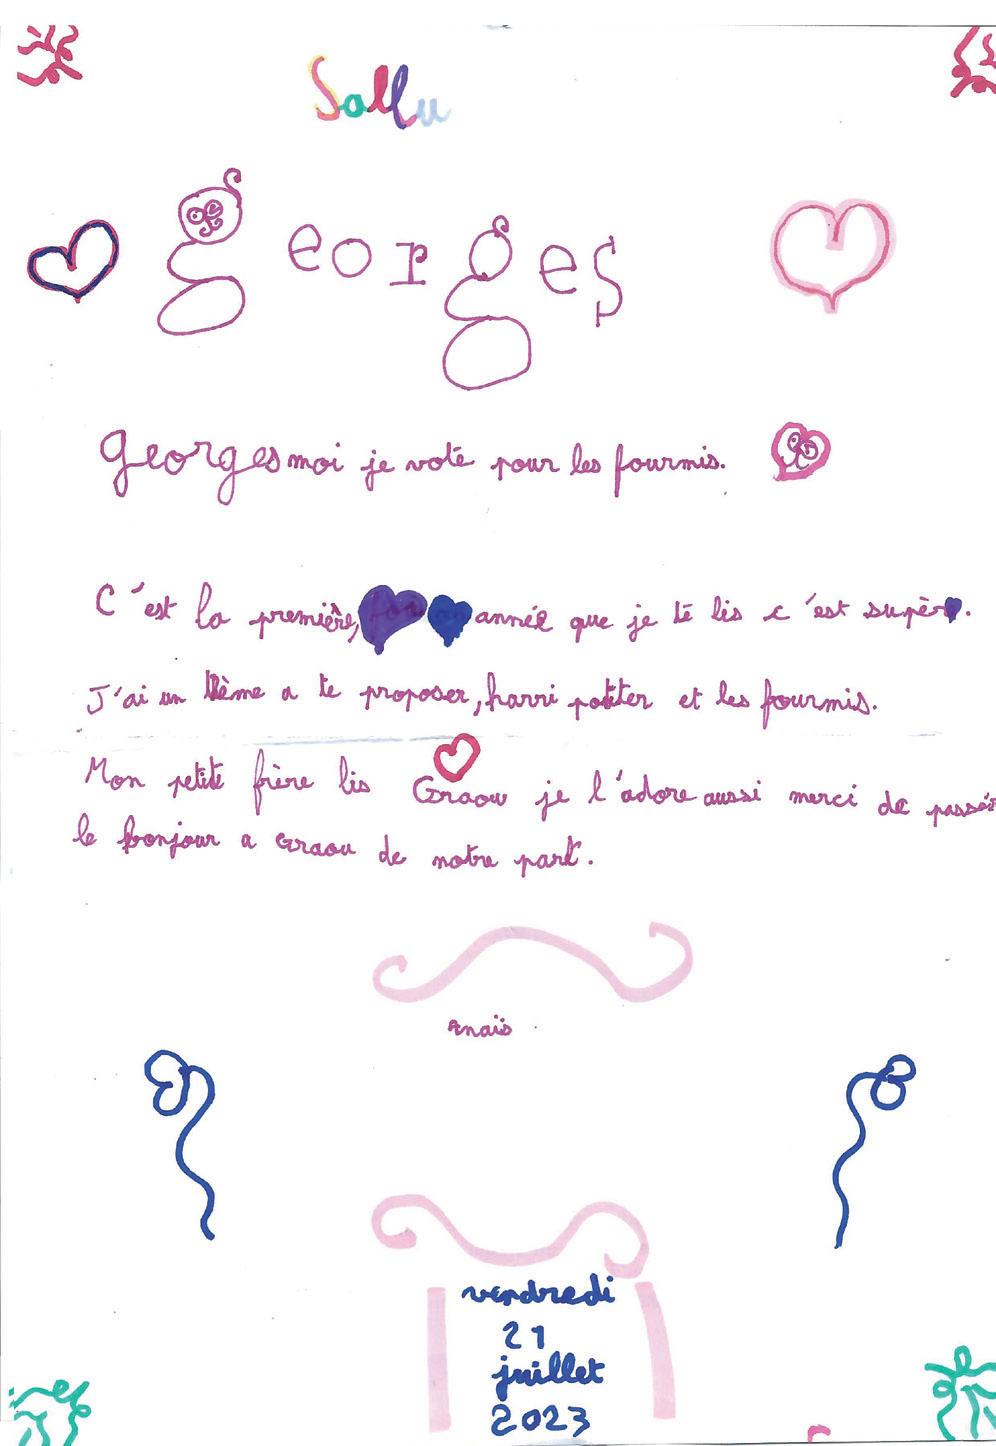 Sallu
georges
georges moi je vote pour les fourmis.
C'est la première, année que je te lis c'est supèr.
J'ai un thème a te proposer, harri potter et les fourmis.
Mon petite frère lis Graou je l'adore aussi merci de passér
le bonjour a Graou de notre part.
Anaïs
vendredi
21
juillet
2023